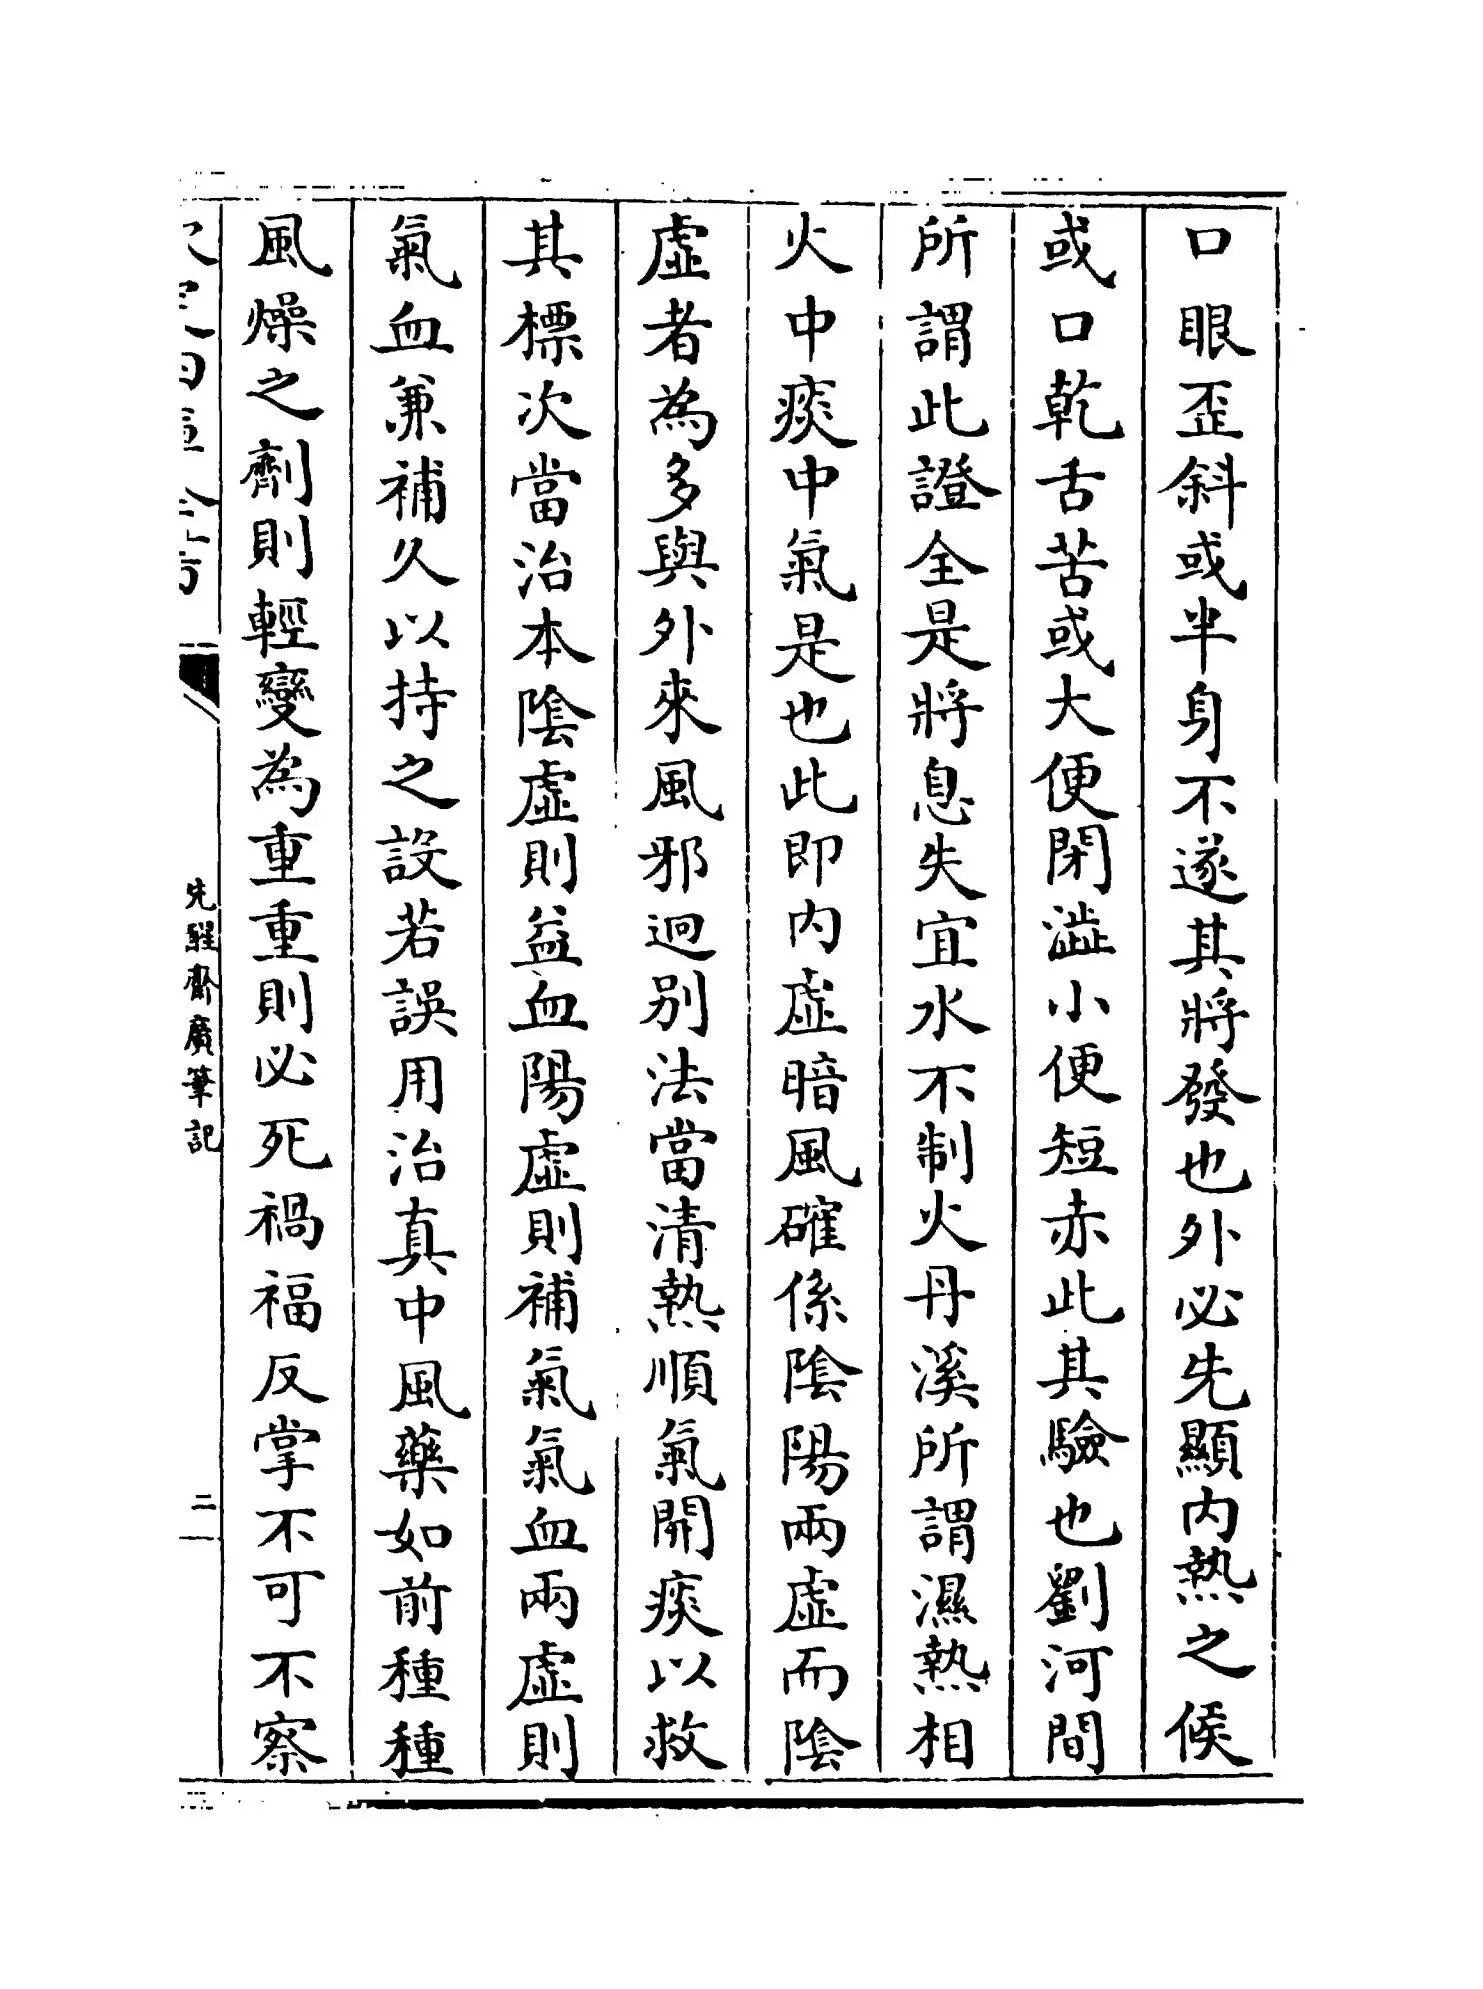 口眼歪斜或半身不遂其將發也外必先顯內熱之候
或口乾舌苦或大便閉澁小便短赤此其驗也劉河間
所謂此證全是將息失宜水不制火丹溪所謂濕熱相
火中痰中氣是也此即內虛暗風確係陰陽兩虛而陰
虛者為多與外來風邪迥别法當清熱順氣開痰以救
其標次當治本陰虛則益血陽虛則補氣氣血兩虛則
氣血兼補久以持之設若誤用治真中風藥如前種種
風燥之劑則輕變為重重則必死禍福反掌不可不察
先醒齋廣筆記
二